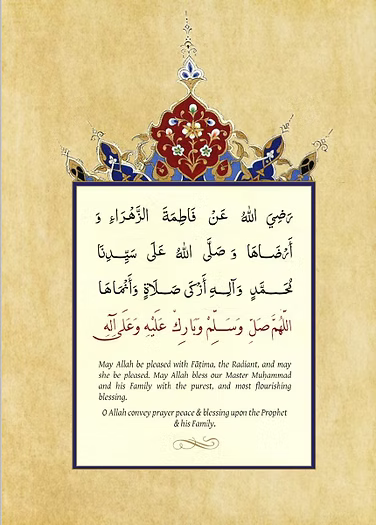 رَضِيَ اللهُ عَنْ فَاطِمَةَ الزَّهْرَاءِ وَ
أَرْضَاهَا وَ صَلَّى اللهُ عَلَى سَيِّدِنَا
مُحَمَّدٍ وَآلِهِ أَزْكَى صَلَاةٍ وَأَنْمَاهَا
اللّٰهُمَّ صَلِّ وَسَلِّمْ وَبَارِكْ عَلَيْهِ وَعَلَى آلِهِ
May Allah be pleased with Fāṭima, the Radiant, and may
she be pleased. May Allah bless our Master Muḥammad
and his Family with the purest, and most flourishing
blessing.
O Allah convey prayer peace & blessing upon the Prophet
& his Family.